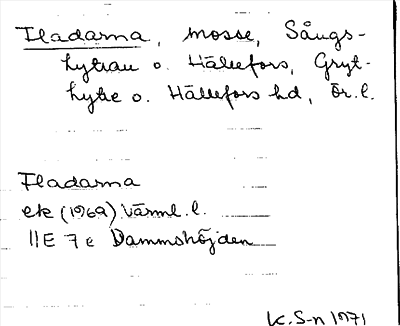 Fladarna, mosse, Sångs-
hyttan o. Hällefors, Gryt-
hytte o. Hällefors hd, Ör. l.
Fladarna
ek (1969) Värml. l.
11E 7e Dammshöjden
K.S-n 1971